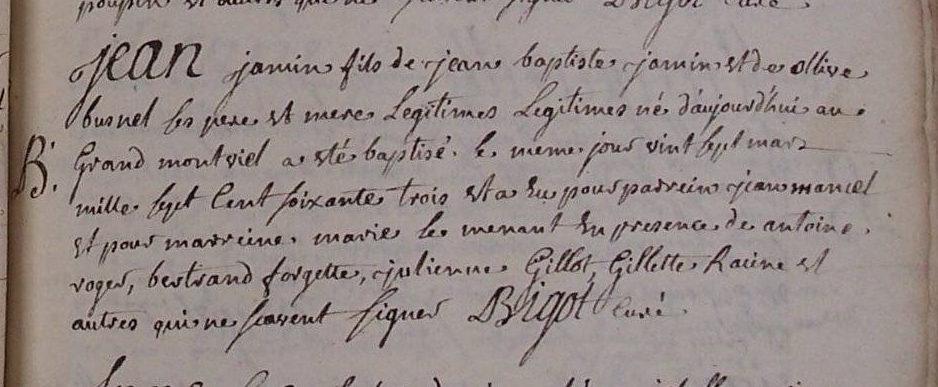 poupin et autres qui ne scavent signer Brigot curé
jean jamin fils de jean baptiste jamin et de ollive
busnel ses pere et mere Legitimes Legitimes né d'aujourd'hui au
B. Grand montviel a eté baptisé le meme jour vint sept mars
mille sept Cent soixante trois et a Eu pour parrein jean mancel
et pour marreine marie le menant En presence de antoine
roger, bertrand forgette, julienne Gillot, Gillette Racine et
autres qui ne scavent signer Brigot curé